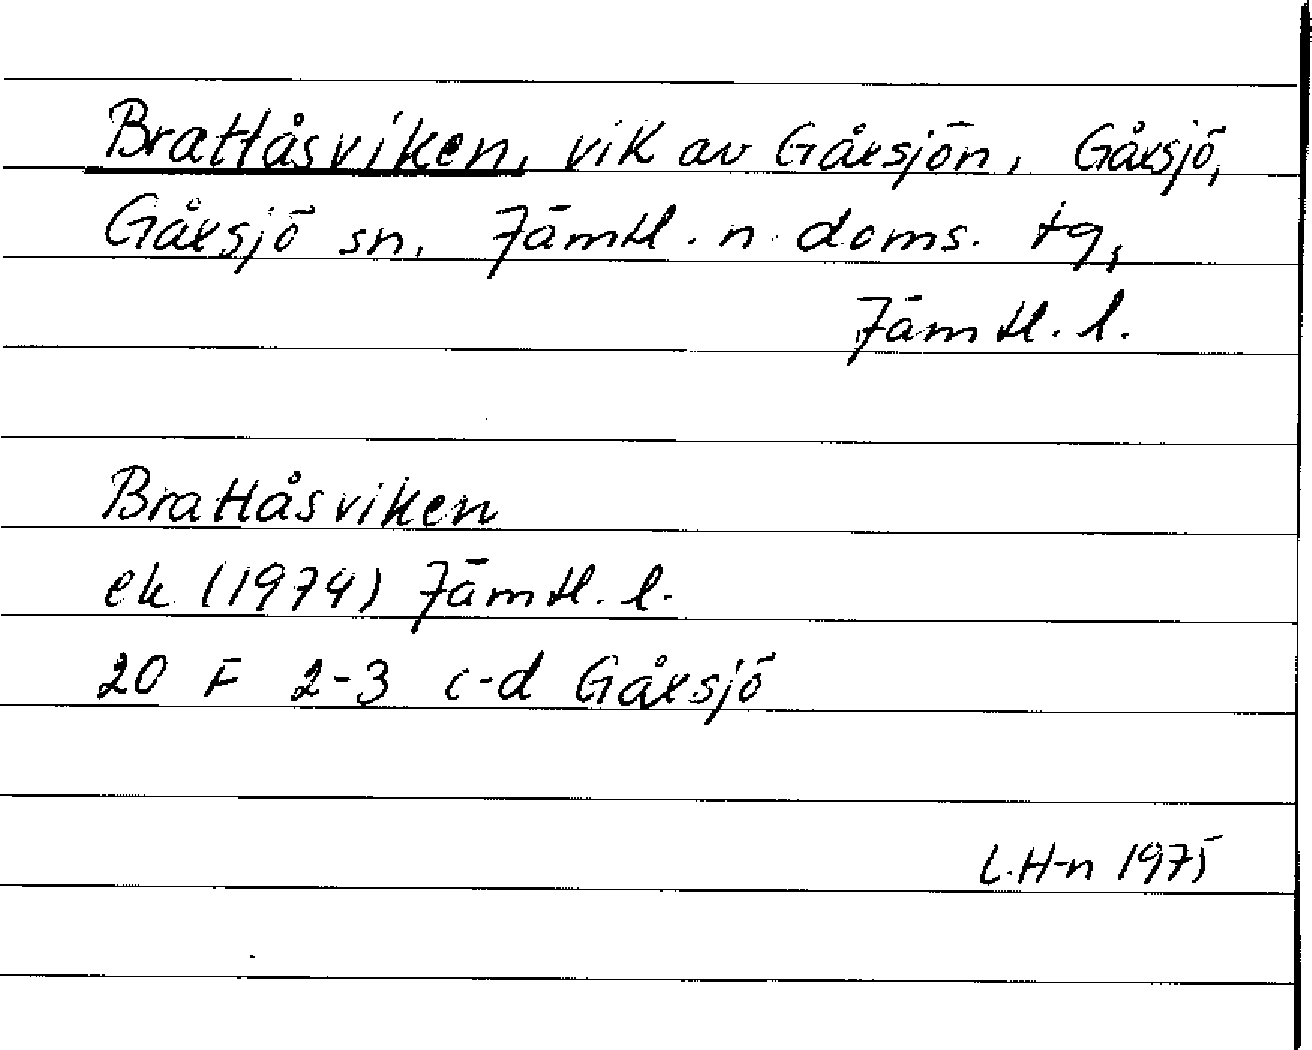 Brattåsviken, vik av Gåxsjön, Gåxsjö,
Gåxsjö sn, Jämtl. n. doms. tg,
Jämtl. l.
Brattåsviken
ek (1974) Jämtl. l.
20 F 2-3 c-d Gåxsjö
L.H-n 1975